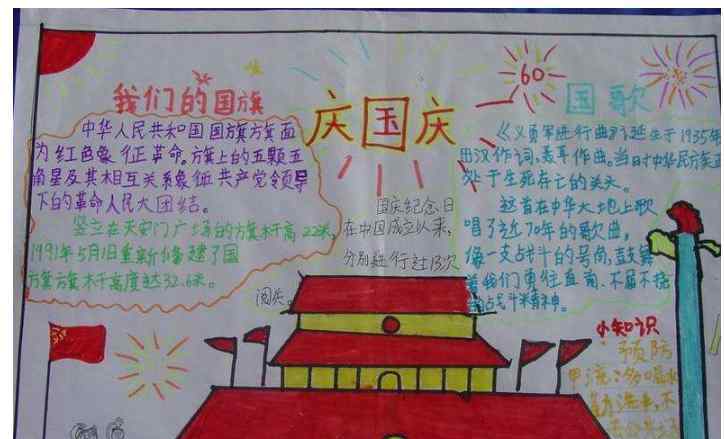 我们的国旗
中华人民共和国国旗旗面
为红色象征革命。旗上的五颗五
角星及其相互关系象征共产党领导
下的革命人民大团结。
竖立在天安门广场的旗杆高22米,
1991年5月1日重新修建了国
旗旗杆高度达32.6米。
庆国庆
60
国庆纪念日
在中国成立以来,
分别进行过13次
阅兵。
国歌
《义勇军进行曲》诞生于1935年
田汉作词,聂耳作曲。当时中华民族正
处于生死存亡的关头。
这首在中华大地上歌
唱了近70年的歌曲,
像一支战斗的号角,鼓舞
着我们勇往直前、不屈不挠
战斗精神。
小知识
预防
甲流:多喝水